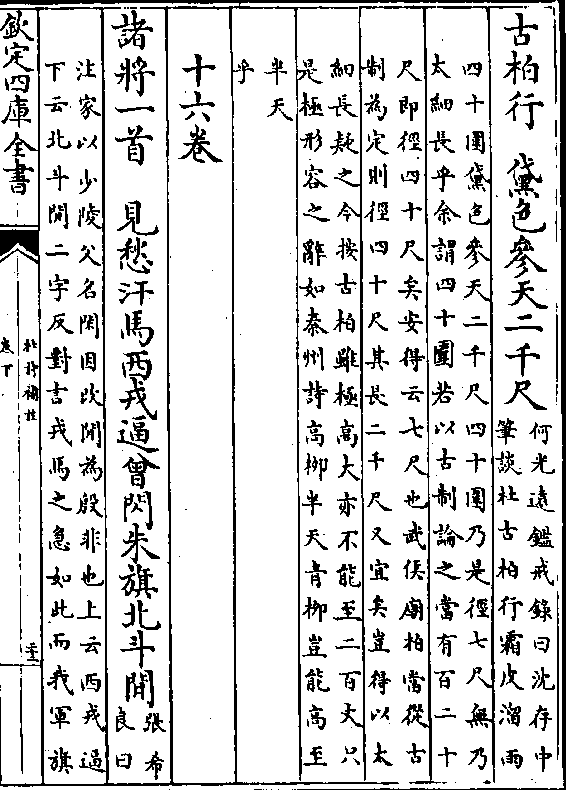 古柏行 黛色參天二千尺
何光遠鑑戒錄曰沈存中
筆談杜古柏行霜皮溜雨
四十圍黛色參天二千尺四十圍乃是徑七尺無乃
太細長乎余謂四十圍若以古制論之當有百二十
尺即徑四十尺矣安得云七尺也武侯廟柏當從古
制為定則徑四十尺其長二千尺又宜矣豈得以太
細長疑之今按古柏雖極高大亦不能至二百丈只
是極形容之辭如秦州詩高栁半天青栁豈能高至
半天
乎
十六卷
諸將一首 見愁汗馬西戎逼曾閃朱旗北斗閒
張希
良曰
注家以少陵父名閑因改閒為殷非也上云西戎逼
下云北斗閒二字反對言戎馬之急如此而我軍旗
欽定四庫全書
卷下